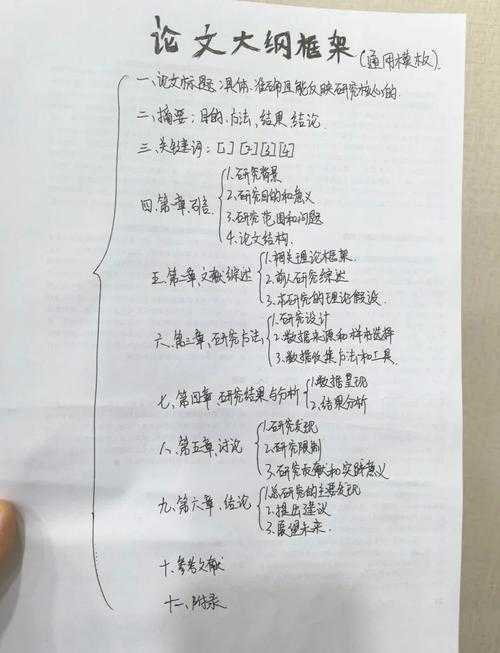 论文大纲框架(通用模板)
一、论文标题:具体、准确且能反映研究核心的
二、摘要:目的、方法、结果、结论
三、关键词:[1] [2] [3] [4]
四、第一章、引言
1.研究背景
2.研究目的和意义
3.研究范围和问题
4.论文结构.
五、第二章、文献综述
1.相关理论框架.
2.前人研究综述
3.本研究的理论假设.
六、第三章、研究方法
1.研究设计
2.数据来源和样本选择
3.数据收集方法和工具.
七、第四章 研究结果与分析
1.数据呈现
2.结果分析
八、第五章、讨论
1.研究发现
2.研究限制
3.研究贡献和实践意义
九、第六章、结论
1.总研究的主要发现
2.提出建议
3.展望未来.
十、参考文献
十一、附录